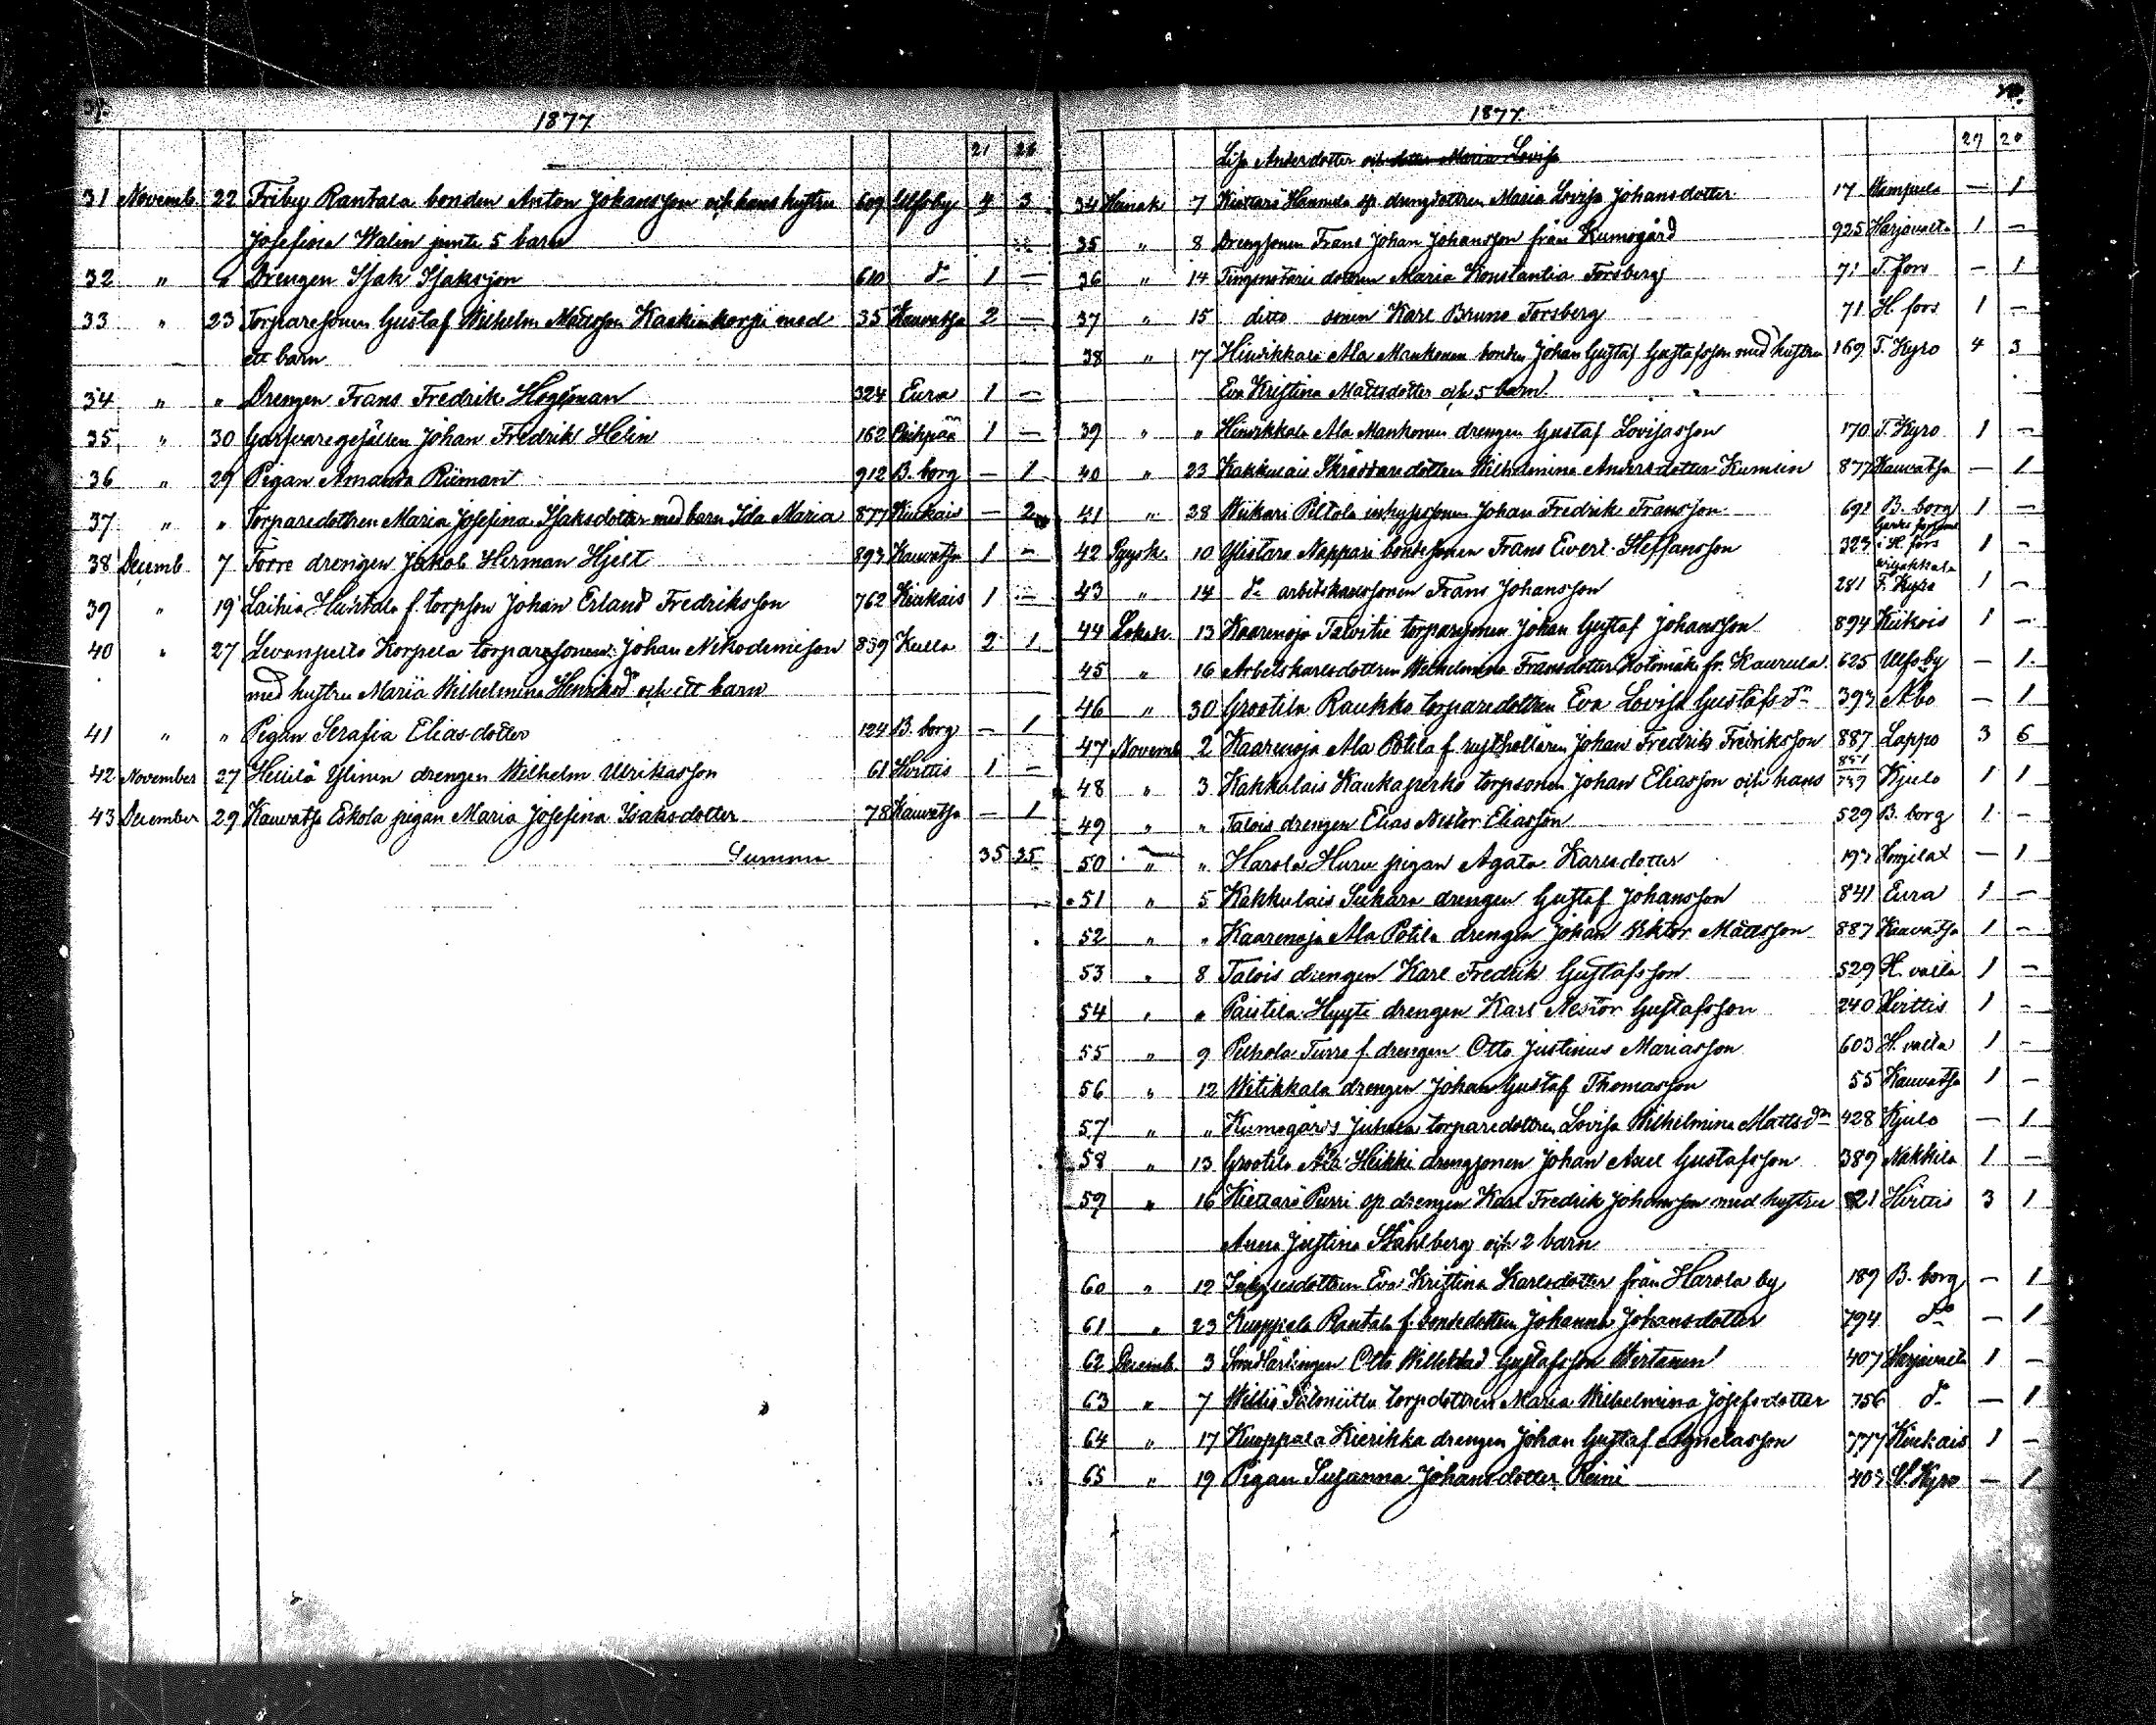 1877
21 28
31 Novemb. 22 Friby Rantala bonden Anton Johansson och hans hustru 609 Ulfsby 4 3
Josefina Walin jemte 5 barn
32 " " Drengen Isak Isaksson 610 d:o 1 —
33 " 23 Torparesonen Gustaf Wilhelm Mattsson Kaskinkorpi med 35 Kauvatsa 2 —
ett barn
34 " " Drengen Frans Fredrik Hogeman 324 Eura 1 —
35 " 30 Garfvaregesällen Johan Fredrik Helin 162 Påhpää 1 —
36 " 29 Pigan Amanda Riimant 912 B. borg — 1
37 " " Torparedottren Maria Josefina Isaksdotter med barn Ida Maria 877 Kiukais — 2
38 Decemb 7 Torre drengen Jakob Herman Hjelt 893 Kauvatsa 1 —
39 " 19 Laihia Huistala f. torpson Johan Erland Fredriksson 762 Kiukais 1 —
40 " 27 Levanpelto Korpela torparesonen Johan Nikodemisson 839 Kulla 2 1
med hustru Maria Wilhelmina Henriksd:r och ett barn
41 " " Pigan Serafia Eliasdotter 124 B. borg — 1
42 November 27 Heiilä Ylinen drengen Wilhelm Ulrikasson 61 Hvittis 1 —
43 December 29 Kauvatsa Eskola pigan Maria Josefina Isaksdotter 78 Kauvatsa — 1
Summa 35 25
1877
27 28
Lisa Andersdotter och dotter Maria Lovisa
34 7 Kiettare Hannula sp. drengdottren Maria Lovisa Johansdotter 17 — 1
35 " 8 Drengsonen Frans Johan Johansson från Kumogård 925 Harjavalta 1 —
36 " 14 Tingsnotarie dottren Maria Konstantia Forsberg 71 T. fors — 1
37 " 15 ditto sonen Karl Bruno Forsberg 71 H. fors 1 —
38 " 17 Hinrikkala Ala Mankonen bonden Johan Gustaf Gustafsson med hustru 169 T. Kyro 4 3
Eva Kristina Mattsdotter och 5 barn
39 " " Hinrikkala Ala Mankonen drengen Gustaf Lovisasson 170 T. Kyro 1 —
40 " 23 Kakkulais Skräddaredottren Wilhelmina Andersdotter Kumlin 877 Kauvatsa — 1
41 " 28 Wiikari Piltola inhysesonen Johan Fredrik Fransson 691 B. borg 1 —
42 Syysk. 10 Ylistaro Nappari bondesonen Frans Evert Steffansson 323 i H. fors 1 —
43 " 14 d:o arbetskarlssonen Frans Johansson 281 T. Kyro 1 —
44 Lokak. 13 Kaarenoja Talvitie torparesonen Johan Gustaf Johansson 894 Kiukais 1 —
45 " 16 Arbetskarlsdottren Wilhelmina Fransdotter Kotomäki fr. Kaurula 625 Ulfsby — 1
46 " 30 Grootila Raukko torparedottren Eva Lovisa Gustafsd:r 393 Åbo — 1
47 Novemb 2 Kaarenoja Ala Potila f. rusthållaren Johan Fredrik Fredriksson 887 Lappo 3 6
48 " 3 Kakkulais Kaukaperko torpsonen Johan Eliasson och hans Kjulo 1 1
49 " " Talois drengen Elias Nestor Eliasson 529 B. borg 1 —
50 " " Harola Huru pigan Agata Karlsdotter 193 Hongilax — 1
51 " 5 Kakkulais Suikara drengen Gustaf Johansson 841 Eura 1 —
52 " " Kaarenoja Ala Potila drengen Johan Viktor Mattsson 887 Kauvatsa 1 —
53 " 8 Talois drengen Karl Fredrik Gustafsson 529 H. valta 1 —
54 " " Paistila Hyyti drengen Karl Nestor Gustafsson 240 Hvittis 1 —
55 " 9 Pehola Turre f. drengen Otto Justinus Mariasson 603 H. valta 1 —
56 " 12 Witikkala drengen Johan Gustaf Thomasson 55 Kauvatsa 1 —
57 " " Kumogårds Juhola torparedottren Lovisa Wilhelmina Mattsd:r 428 Kjulo — 1
58 " 13 Grootila Ala Heikki drengsonen Johan Axel Gustafsson 389 Nakkila 1 —
59 " 16 Kiettare Purri sp drengen Karl Fredrik Johansson med hustru 821 Hvittis 3 1
Anna Justina Ståhlberg och 2 barn
60 " 12 Inhysesdottren Eva Kristina Karlsdotter från Harola by 189 B. borg — 1
61 " 23 Kuoppala Rantala f. bondedottren Johanna Johansdotter 794 d:o — 1
62 Decemb. 3 Smedlärlingen Otto Willehad Gustafsson Wirtanen 407 Harjavalta 1 —
63 " 7 Willio Salonjitta torpdottren Maria Wilhelmina Josefsdotter 756 d:o — 1
64 " 17 Kuoppala Kierikka drengen Johan Gustaf Agnetasson 777 Kiukais 1 —
65 " 19 Pigan Susanna Johansdotter Reini 403 S. Kyro — 1